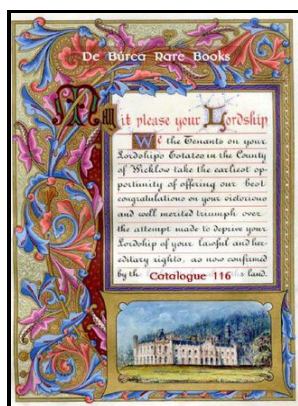 De Búrca Rare Books
May it please your Lordship
We the Tenants on your
Lordship's Estates in the County
of Wicklow take the earliest op-
portunity of offering our best
congratulations on your victorious
and well merited triumph over
the attempt made to deprive your
Lordship of your lawful and her-
editary rights, as now confirmed
by th Catalogue 116 s land.